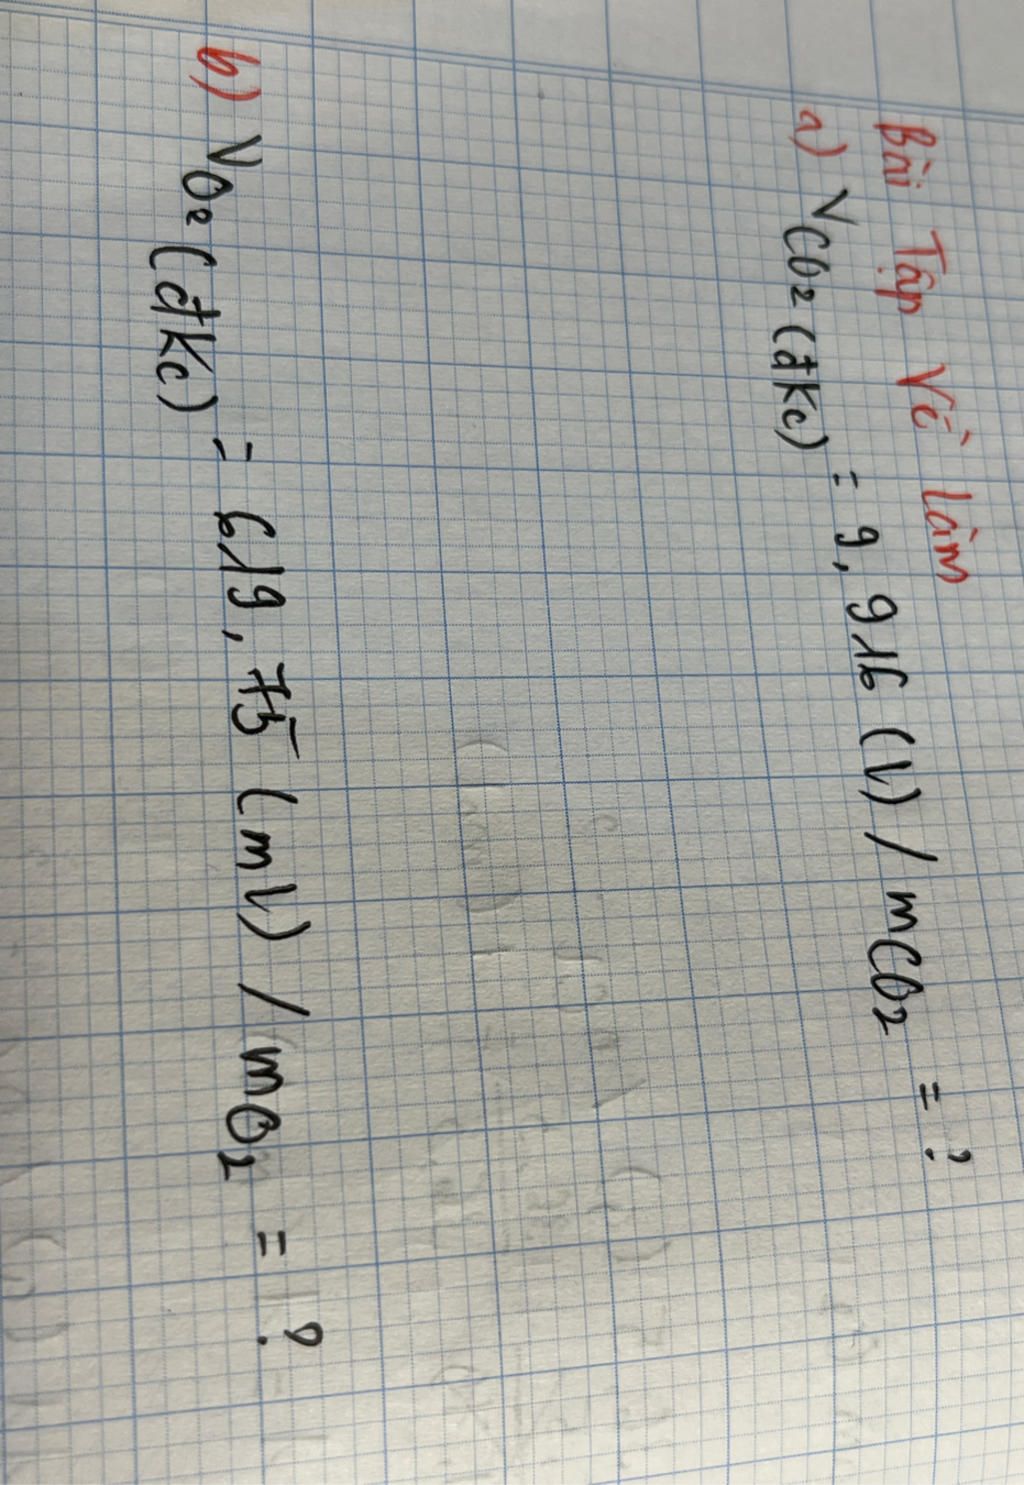 Bài Tập Về Làm
a) VCO₂ (đkc) = 9,916 (l) / mCO₂ = ?
b) VO₂ (đkc) = 619,75 (ml) / mO₂ = ?